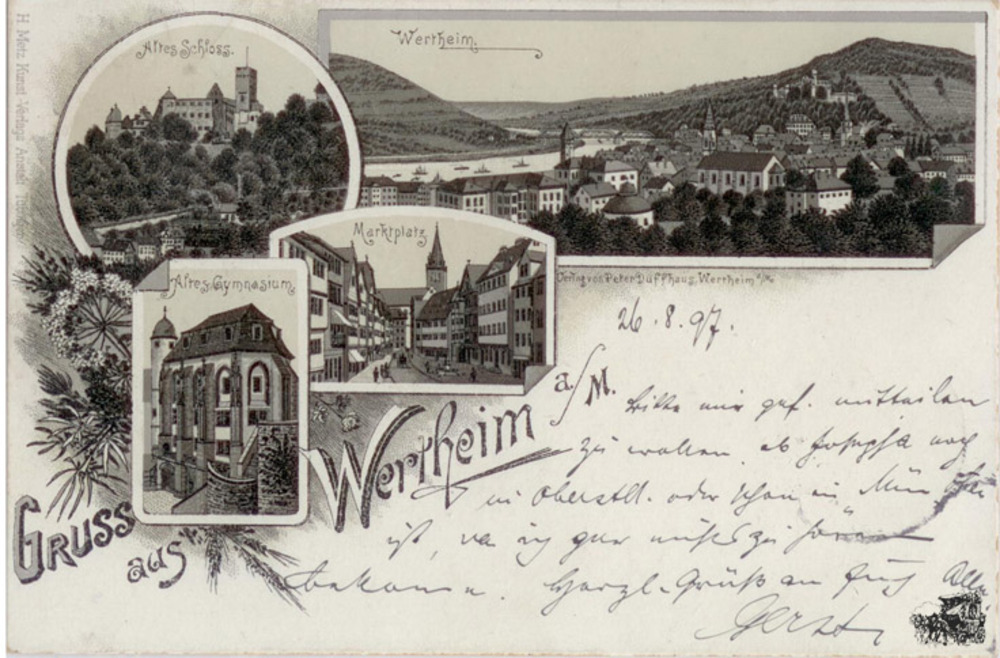 H. Metz Kunst-Verlags Anstalt Tübingen
Altes Schloss.
Wertheim.
Marktplatz
Altes Gymnasium.
Verlag von Peter Düffhaus, Wertheim a/M.
Gruss
aus
Wertheim a/M.
26.8.97.
Bitte mir gef. mitteilen
zu wollen, ob Josepha noch
in Oberstd. oder schon in
ist, da ich gar nichts zu hören
bekomme. Herzl. Grüße an Euch Alle